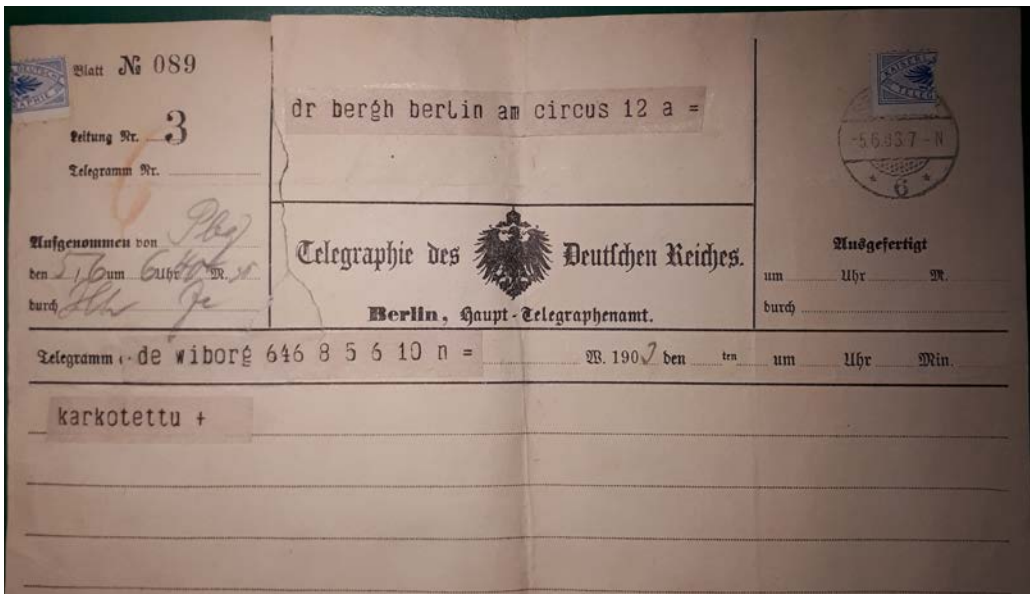 Blatt № 089
Leitung Nr. 3
Telegramm Nr.
6
Aufgenommen von Pbg
den 5/6 um 6 Uhr 40 M.
durch
dr bergh berlin am circus 12 a =
Telegraphie des Deutschen Reiches.
Berlin, Haupt-Telegraphenamt.
KAISERL
TELEG
-5.6.03.7-N
* 6 *
Ausgefertigt
um Uhr M.
durch
Telegramm de wiborg 646 8 5 6 10 n = W. 1903 den ten um Uhr Min.
karkotettu +